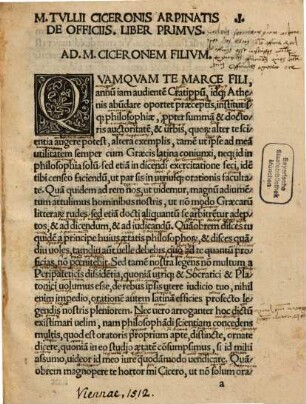 M. TVLLII CICERONIS ARPINATIS
DE OFFICIIS. LIBER PRIMVS.
AD. M. CICERONEM FILIVM.
QVAMQVAM TE MARCE FILI,
annū iam audientē Cratippū, idq; Athe
nis abūdare oportet præceptis, institutisq;
philosophiæ, ꝓpter summā & docto
ris auctoritatē, & urbis, quorꝝ alter te sci
entia augere potest, altera exemplis, tamē ut ipse ad meā
utilitatem semper cum Græcis latina coniunxi, neq; id in
philosophia solū, sed etiā in dicēdi exercitatione feci, idē
tibi censeo faciēdū, ut par sis in utriusq; orationis faculta-
te. Quā quidem ad rem nos, ut uidemur, magnū adiumē-
tum attulimus hominibus nostris, ut nō modo Græcarū
litterarꝝ rudes, sed etiā docti aliquantū se arbitrētur adeptos,
& ad dicendum, & ad iudicandū. Quāobrem disces tu
quidē a principe huius ætatis philosophorꝝ, & disces quā
diu uoles, tamdiu aūt uelle debebis, quoad te quantū proficias,
nō pœnitebit. Sed tamē nostra legens nō multum a
Peripateticis dissidētia, quoniā utriq; & Socratici & Pla-
tonici uolumus esse, de rebus ipsis utere iudicio tuo, nihil
enim impedio, orationē autem latinā efficies profecto le-
gendis nostris pleniorem. Nec uero arroganter hoc dictū
existimari uelim, nam philosophādi scientiam concedens
multis, quod est oratoris proprium apte, distincte, ornate
dicere, quoniā in eo studio ætatē cōsumpsimus, si id mihi
assumo, uideor id meo iure quodāmodo uendicare. Quāob
rem magnopere te hortor mi Cicero, ut nō solum ora
a
Bayerische
Staatsbibliothek
München
Viennae, 1512.